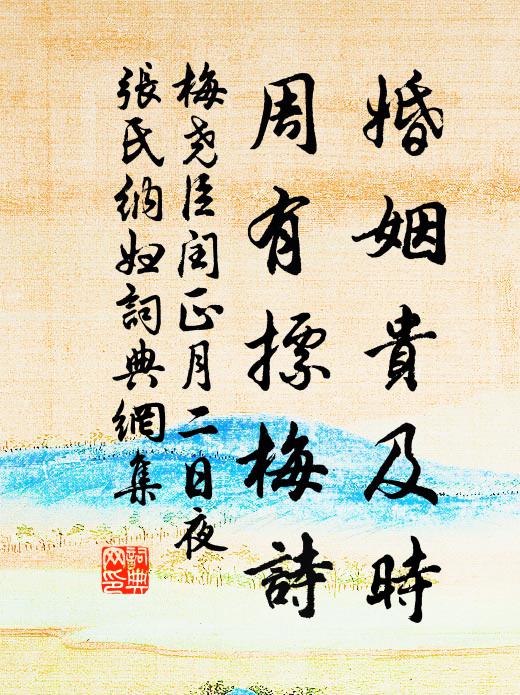 婚姻貴及時
周有摽梅詩
梅堯臣閏正月二日夜
張氏納婦詞典網集
詞典網印